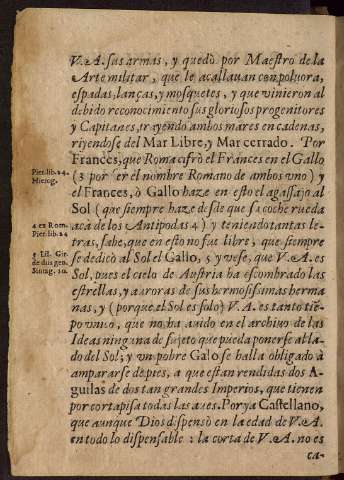 V.A. sus armas, y quedò por Maestro de la
Arte militar, que le acallauan con poluora,
espadas, lanças, y mosquetes, y que vinieron al
debido reconocimiento sus gloriosos progenitores
y Capitanes, trayendo ambos mares en cadenas,
riyendose del Mar Libre, y Mar cerrado. Por
Frances, que Roma cifrò el Frances en el Gallo
Pier. lib. 24.
Hierog.
(3 por ser el nombre Romano de ambos vno) y
el Frances, ò Gallo haze en esto el agassajo al
Sol (que siempre haze desde que sa coche rueda
4 ex Rom.
Pier. lib. 24
aca de los Antipodas 4) y teniendo tantas le-
tras, sabe, que en esto no fue libre, que siempre
5 Lil. Gir.
de diis gen.
Sintag. 10.
se dedicò al Sol el Gallo, 5 y vese, que V.A. es
Sol, pues el cielo de Austria ha escombrado las
estrellas, y auroras de sus hermosissimas herma
nas, y (porque el Sol es solo) V. A. es tanto tiẽ-
po vnico, que no ha auido en el archivo de las
Ideas ninguna de sujeto que pueda ponerse al la-
do del Sol; y vn pobre Galo se halla obligado à
ampararse de pies, a que estan rendidas dos A-
guilas de dos tan grandes Imperios, que tienen
por cortapisa todas las aues. Por ya Castellano,
que aunque Dios dispensò en la edad de V.A.
en todo lo dispensable: la corta de V.A. no es
ca-